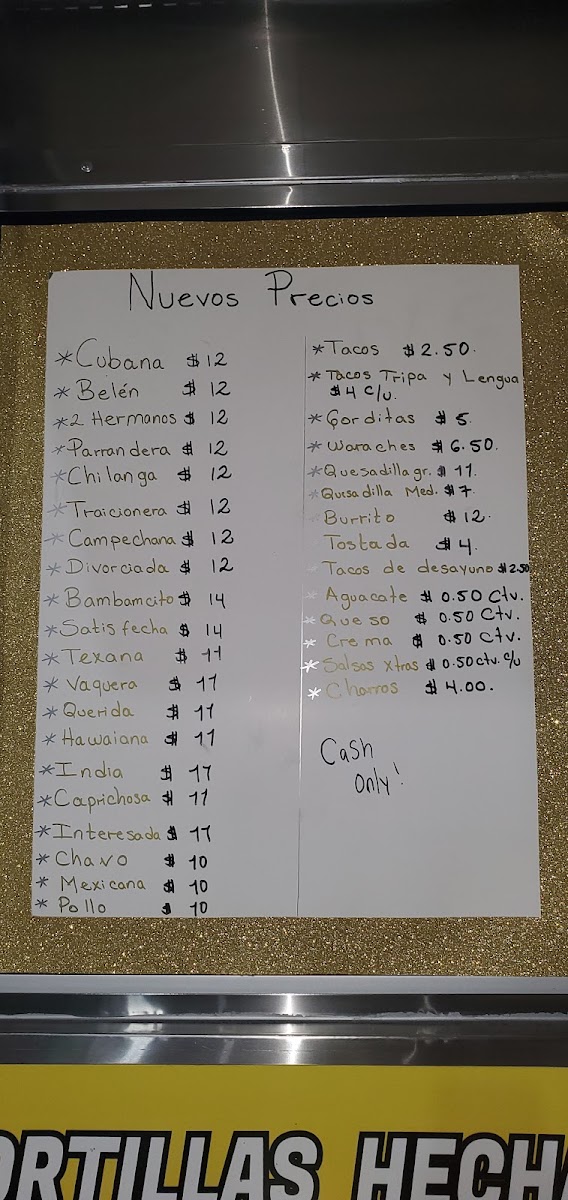 Nuevos Precios
* Cubana $ 12
* Belén $ 12
* 2 Hermanos $ 12
* Parrandera $ 12
* Chilanga $ 12
* Traicionera $ 12
* Campechana $ 12
* Divorciada $ 12
* Bambamcito $ 14
* Satisfecha $ 14
* Texana $ 11
* Vaquera $ 11
* Querida $ 11
* Hawaiana $ 11
* India $ 11
* Caprichosa $ 11
* Interesada $ 11
* Chavo $ 10
* Mexicana $ 10
* Pollo $ 10
* Tacos $ 2.50.
* Tacos Tripa y Lengua
$ 4 c/u.
* Gorditas $ 5.
* Waraches $ 6.50.
* Quesadilla gr. $ 11.
* Quesadilla Med. $ 7.
Burrito $ 12.
Tostada $ 4.
Tacos de desayuno $ 2.50
* Aguacate $ 0.50 Ctv.
* Queso $ 0.50 Ctv.
* Crema $ 0.50 Ctv.
* Salsas xtras $ 0.50 ctv. c/u
* Charros $ 4.00.
Cash
Only!
ORTILLAS HECHA